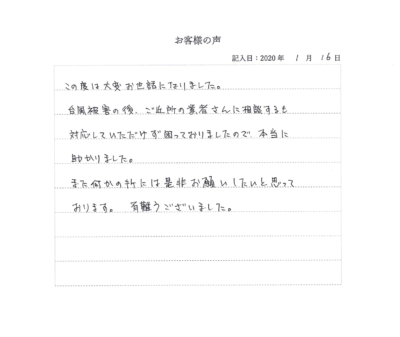 お客様の声
記入日：2020年 1月 16日
この度は大変お世話になりました。
台風被害の後、ご近所の業者さんに相談するも
対応していただけず困っておりましたので本当に
助かりました。
また何かの折には是非お願いしたいと思って
おります。 有難うございました。